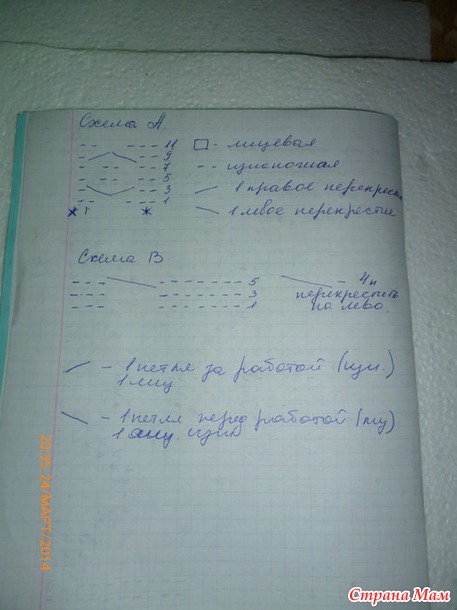 Схема А.
-- -- 11 □ - лицевая
9
-- 7 -- изнаночная
-- 5
3 1 правое перекрест
-- -- 1 1 левое перекрестие
Схема В
5 - 4 п
3 перекрестить
1 на лево.
- 1 петля за работой (изн.)
1 лиц
- 1 петля перед работой
1 изн
20:35 24/МАРТ/2014
Страна Мам